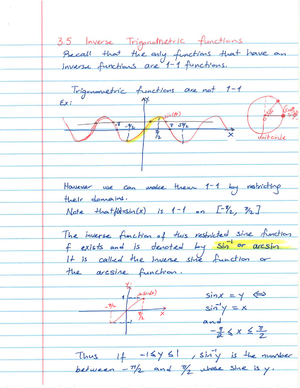 3.5 Inverse Trigonometric functions
Recall that the only functions that have an
inverse functions are 1-1 functions.
Trigonometric functions are not 1-1
Ex:
sin(x)
-π/2
π/2
x
unit circle
However we can make them 1-1 by restricting
their domains.
Note that sin(x) is 1-1 on [-π/2, π/2]
The inverse function of this restricted sine function
f exists and is denoted by sin⁻¹ or arcsin
It is called the inverse sine function or
the arcsine function.
sinx = y ⇔
sin⁻¹y = x
and
-π/2 ≤ x ≤ π/2
-π/2
π/2
x
Thus if -1≤y≤1, sin⁻¹y is the number
between -π/2 and π/2 whose sine is y.